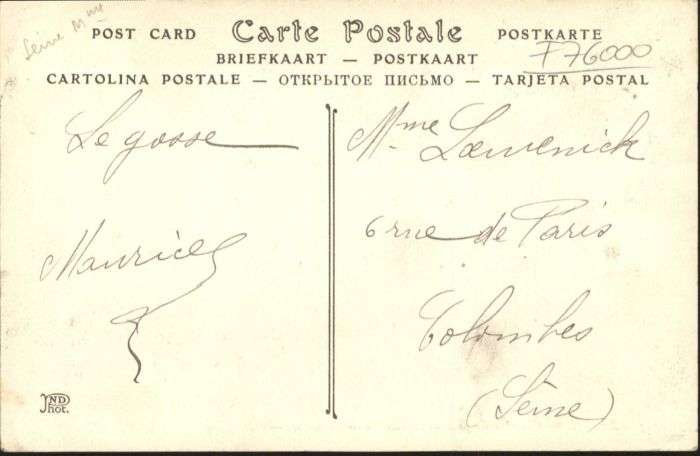 Seine Mme
POST CARD Carte Postale POSTKARTE
F76000
BRIEFKAART — POSTKAART
CARTOLINA POSTALE — ОТКРЫТОЕ ПИСЬМО — TARJETA POSTAL
Le gosse
Maurice
Mme Lœwenick
6 rue de Paris
Colombes
(Seine)
ND Phot.